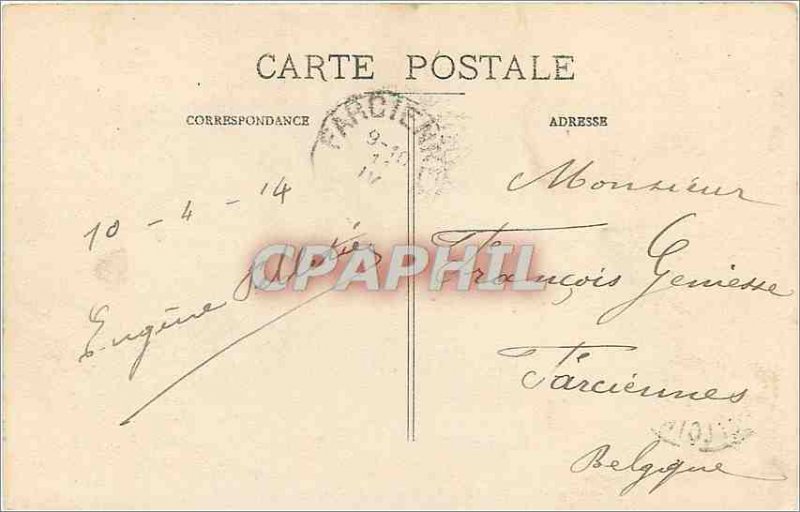 CARTE POSTALE
CORRESPONDANCE
ADRESSE
FARCIENNES
9-10
IV
10 - 4 - 14
Eugène
Monsieur
François Geniesse
Farciennes
Belgique
CPAPHIL